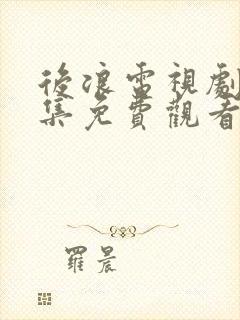 後浪電視劇
集免費觀看
羅晨